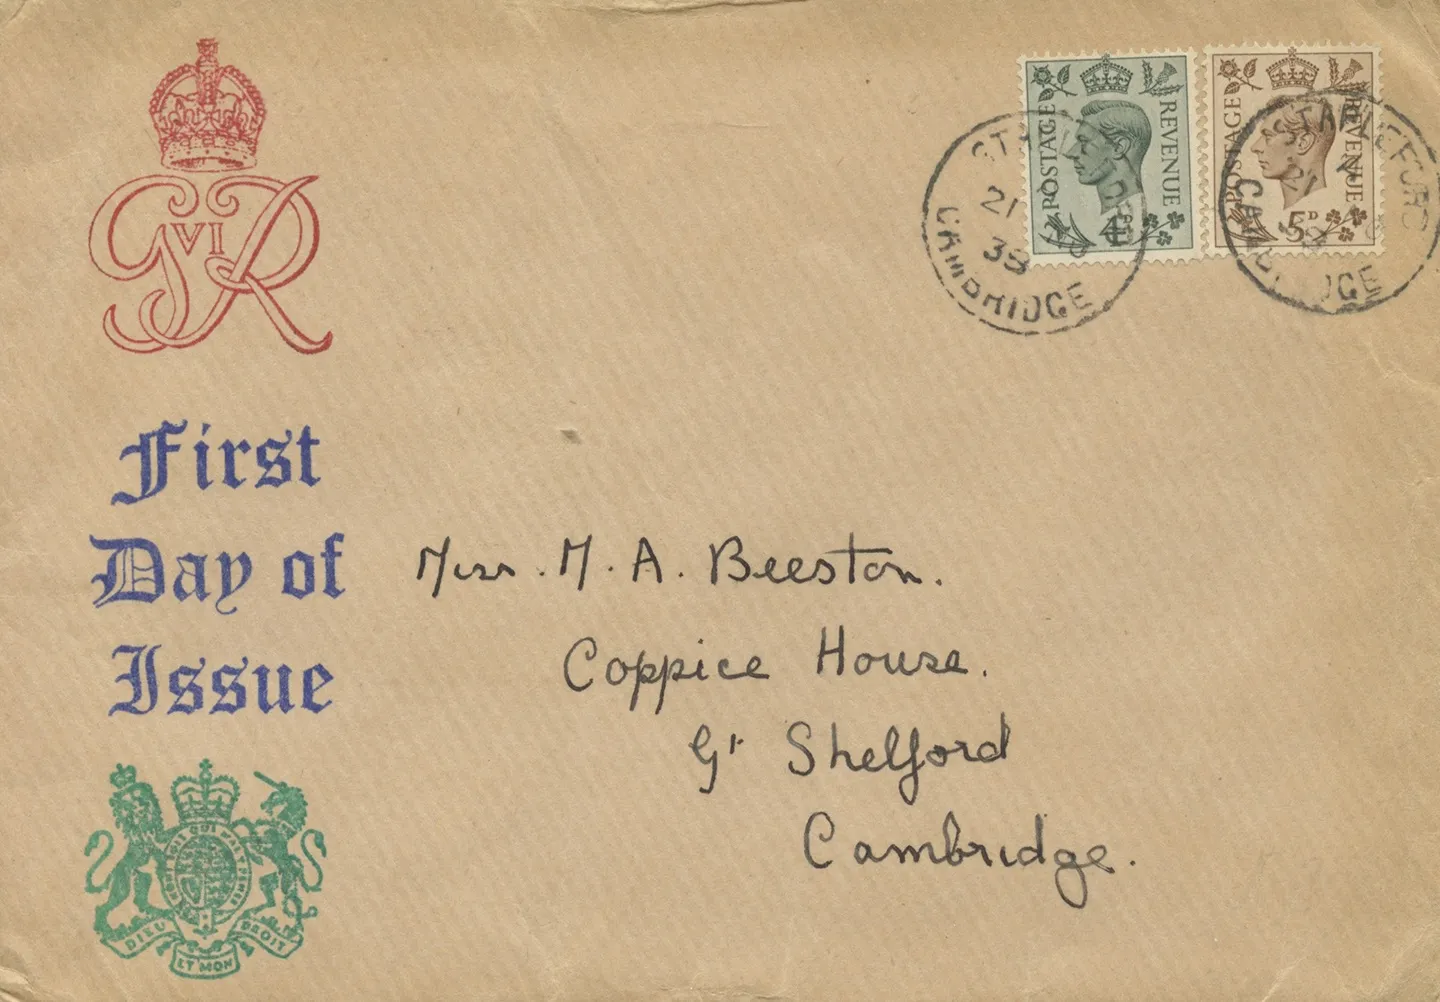 GVIR
First
Day of
Issue
DIEU
ET MON
DROIT
POSTAGE
REVENUE
4D
POSTAGE
REVENUE
5D
STAPLEFORD
21
38
CAMBRIDGE
STAPLEFORD
21
CAMBRIDGE
Miss. M. A. Beeston.
Coppice House.
Gt Shelford
Cambridge.